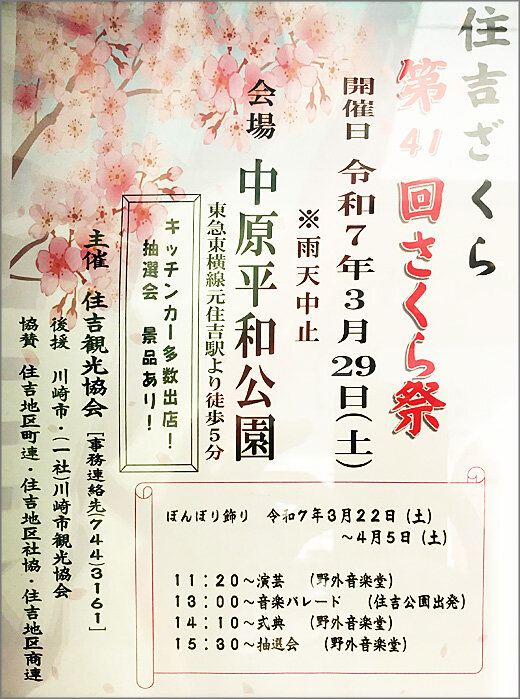 住吉ざくら
第41回さくら祭
開催日 令和7年3月29日(土)
※雨天中止
会場 中原平和公園
東急東横線元住吉駅より徒歩5分
キッチンカー多数出店!
抽選会 景品あり!
主催 住吉観光協会 [事務連絡先(744)3161]
後援 川崎市・(一社)川崎市観光協会
協賛 住吉地区町連・住吉地区社協・住吉地区商連
ぼんぼり飾り 令和7年3月22日(土)
~4月5日(土)
11:20~演芸 (野外音楽堂)
13:00~音楽パレード (住吉公園出発)
14:10~式典 (野外音楽堂)
15:30~抽選会 (野外音楽堂)